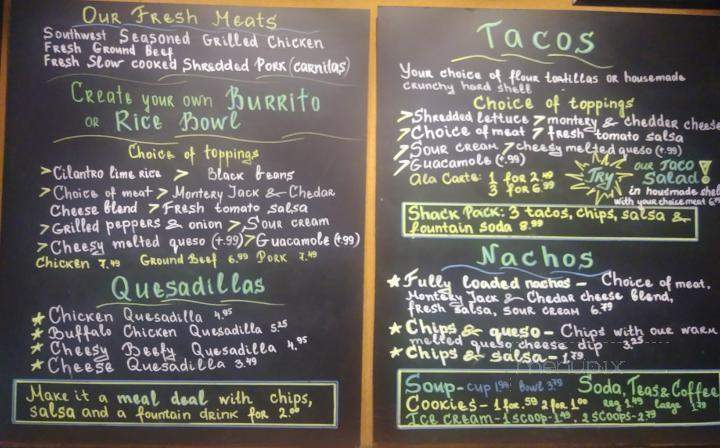 Our Fresh Meats
Southwest Seasoned Grilled Chicken
Fresh Ground Beef
Fresh Slow cooked Shredded Pork (carnilas)
Create your own Burrito
or Rice Bowl
Choice of toppings
> Cilantro lime rice > Black beans
> Choice of meat > Montery Jack & Chedar
Cheese blend > Fresh tomato salsa
> Grilled peppers & onion > Sour cream
> Cheesy melted queso (+.99) > Guacamole (+.99)
Chicken 7.49 Ground Beef 6.99 Pork 7.49
Quesadillas
Chicken Quesadilla 4.95
Buffalo Chicken Quesadilla 5.25
Cheesy Beefy Quesadilla 4.95
Cheese Quesadilla 3.49
Make it a meal deal with chips,
salsa and a fountain drink for 2.00
Tacos
Your choice of flour tortillas or housemade
crunchy hard shell
Choice of toppings
> Shredded lettuce > montery & chedder cheese
> Choice of meat > fresh tomato salsa
> Sour cream > cheesy melted queso (+.99)
> Guacamole (+.99)
Ala Carte: 1 for 2.49
3 for 6.99
Try our Taco
Salad!
in housemade shell
with your choice meat
Shack Pack: 3 tacos, chips, salsa &
fountain soda 8.99
Nachos
Fully loaded nachos - Choice of meat,
Montery Jack & Chedar cheese blend,
fresh salsa, sour cream 6.79
Chips & queso - Chips with our warm
melted queso cheese dip 3.25
Chips & salsa - 1.79
menupix
Soup - cup 1.99 Bowl 3.79 Soda, Teas & Coffee
Cookies - 1 for .59 2 for 1.00 reg 1.49 large
Ice cream - 1 scoop - 1.49, 2 scoops - 2.79